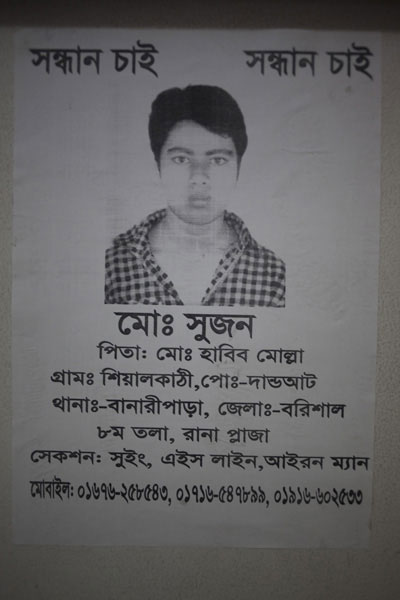 সন্ধান চাই সন্ধান চাই
মোঃ সুজন
পিতা: মোঃ হাবিব মোল্লা
গ্রামঃ শিয়ালকাঠী,পোঃ-দান্ডআট
থানাঃ-বানারীপাড়া, জেলাঃ-বরিশাল
৮ম তলা, রানা প্লাজা
সেকশন: সুইং, এইস লাইন,আইরন ম্যান
মোবাইল: ০১৬৭৬-২৫৮৫৪৩, ০১৭১৬-৫৪৭৮৯৯, ০১৯১৬-৬০২৫৩৩